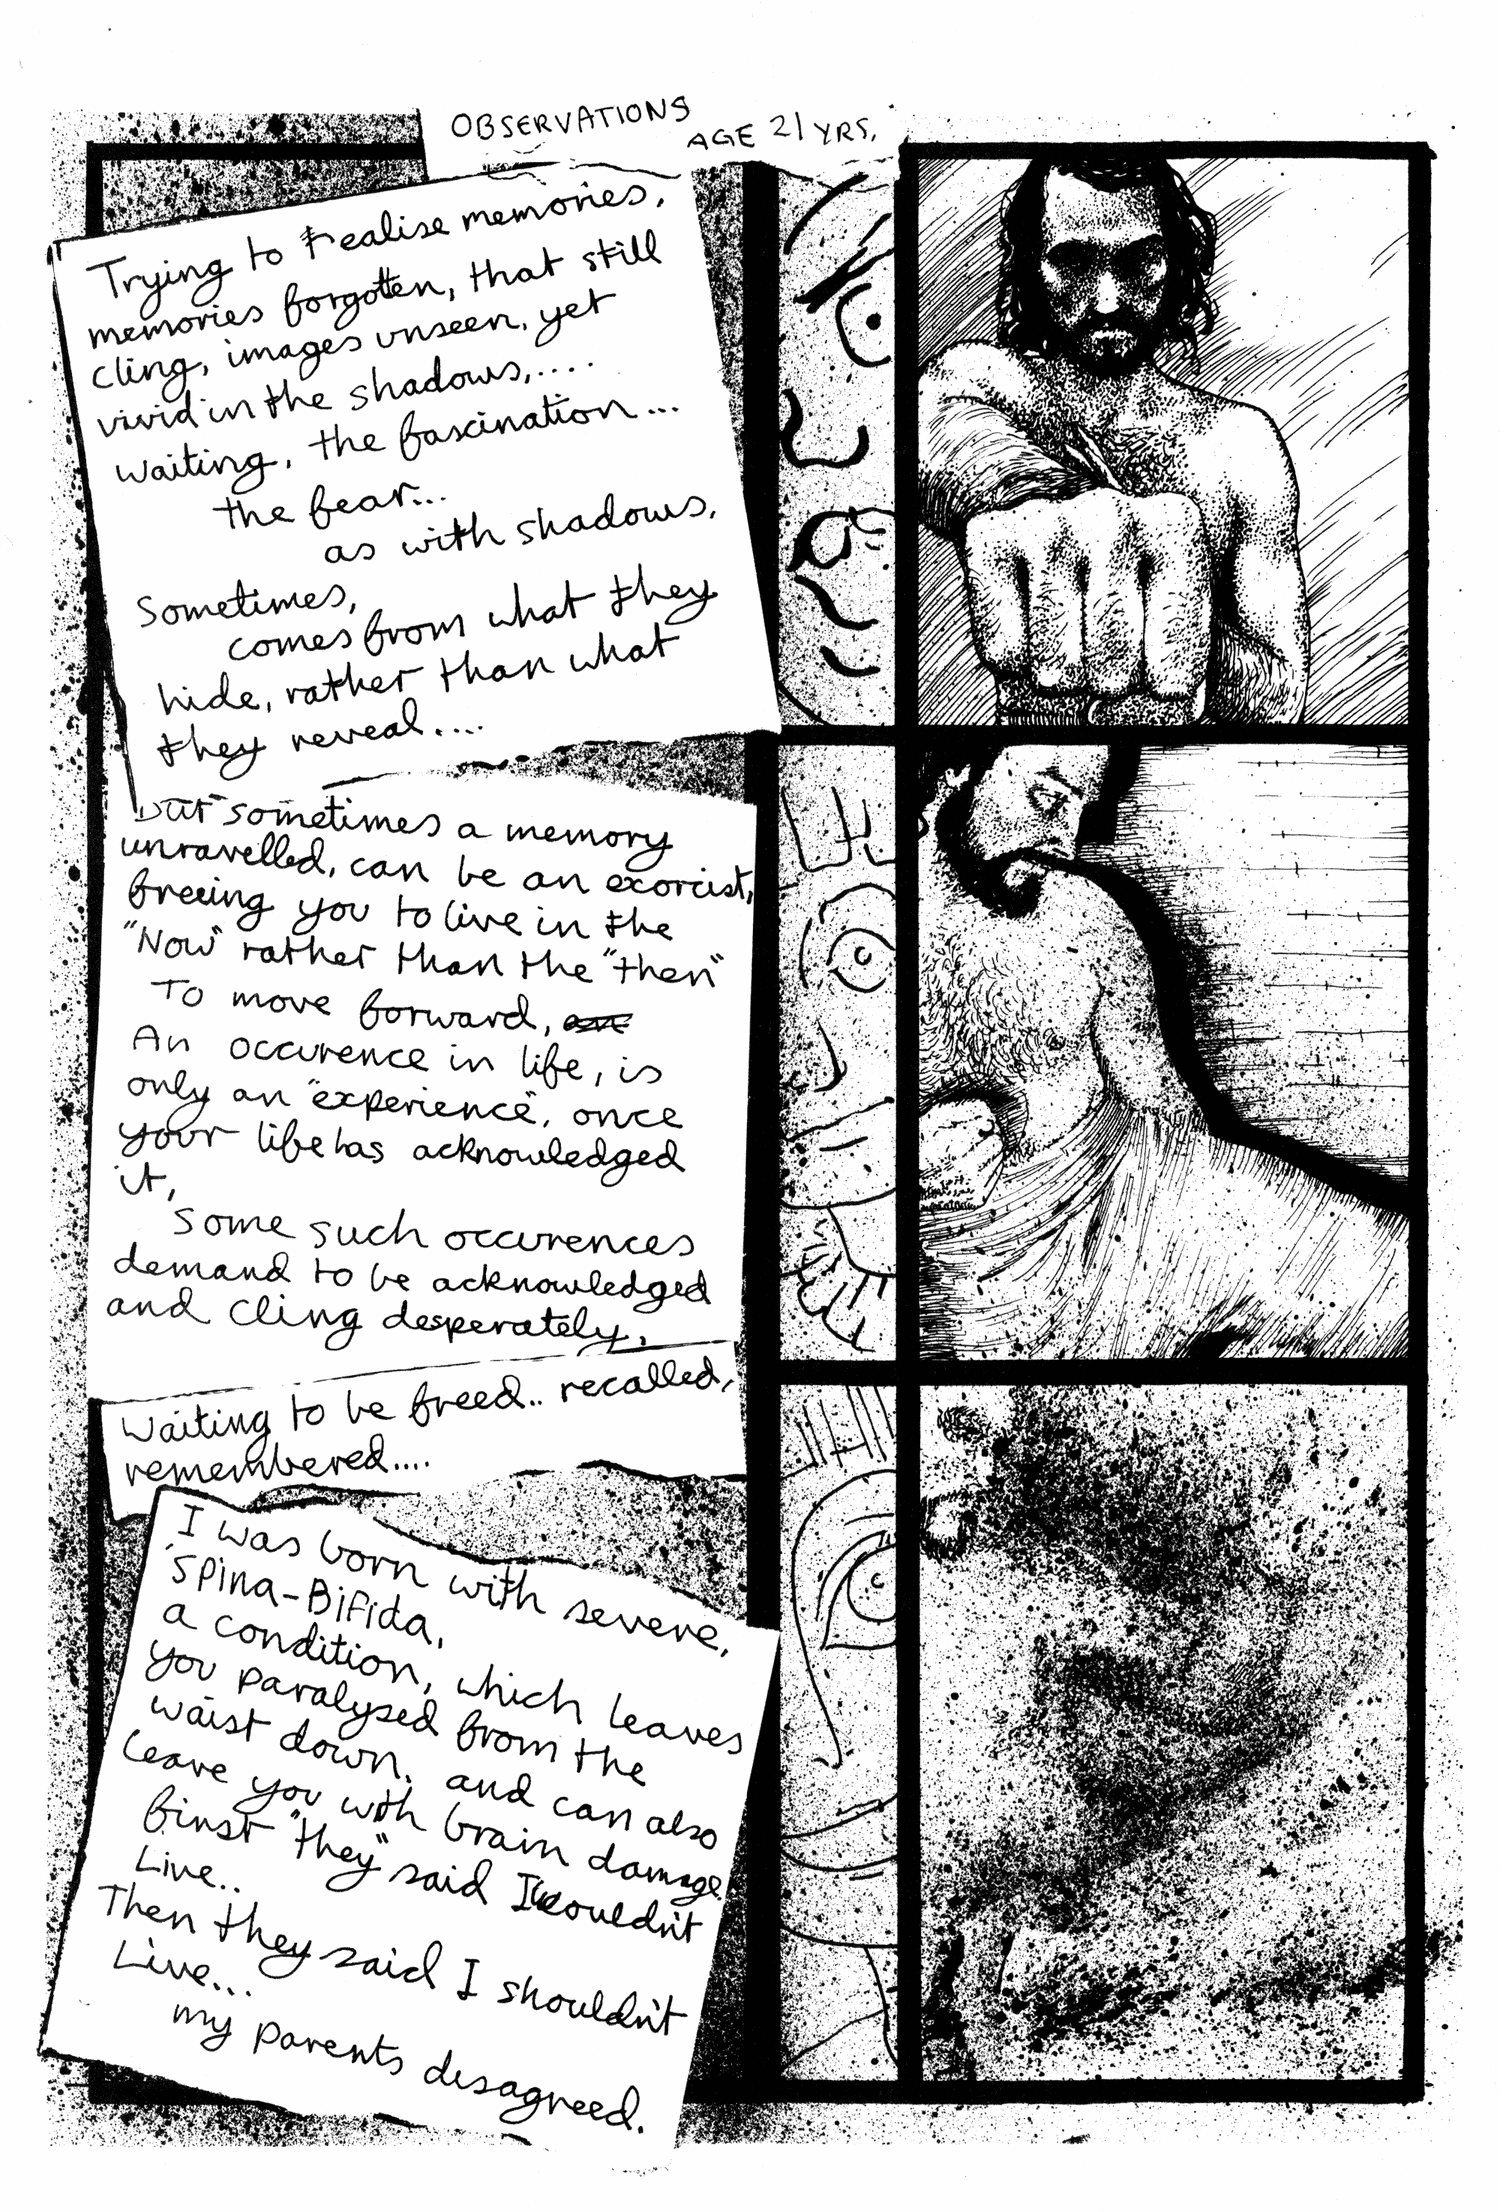 OBSERVATIONS
AGE 21 YRS.
Trying to realise memories,
memories forgotten, that still
cling, images unseen, yet
vivid in the shadows,....
waiting, the fascination...
the fear...
as with shadows,
Sometimes,
comes from what they
hide, rather than what
they reveal....
but sometimes a memory
unravelled, can be an exorcist,
freeing you to live in the
"Now" rather than the "then"
To move forward,
An occurence in life, is
only an "experience", once
your life has acknowledged
it,
Some such occurences
demand to be acknowledged
and cling desperately,
Waiting to be freed.. recalled,
remembered....
I was born with severe,
'Spina-Bifida,
a condition, which leaves
you paralysed from the
waist down, and can also
leave you with brain damage
first "they" said I wouldn't
Live..
Then they said I shouldn't
Live...
my parents disagreed.